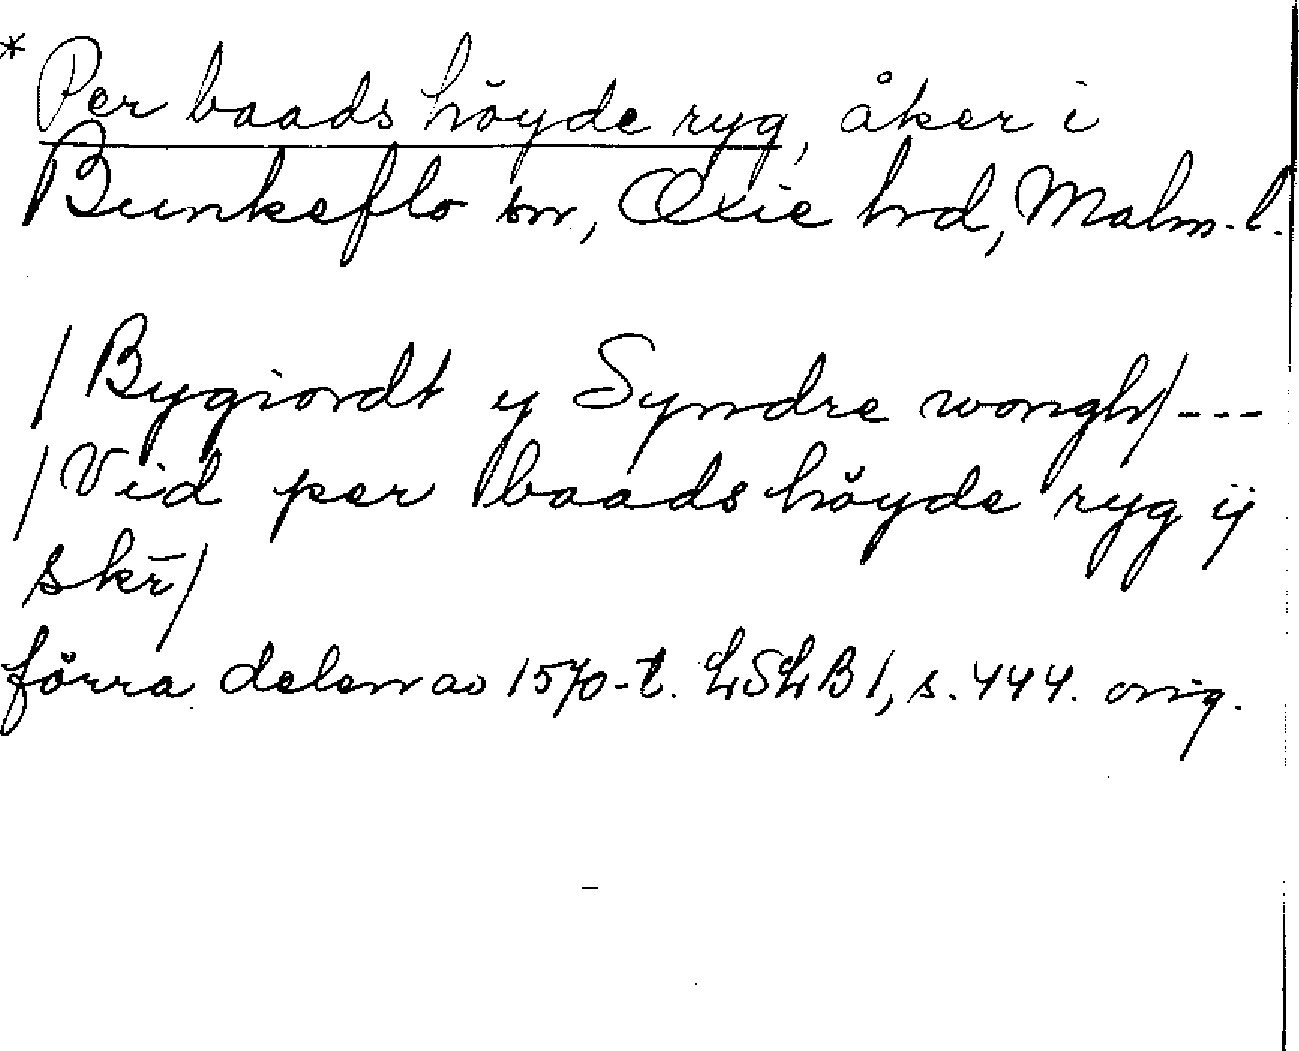 * Per baads höyde ryg, åker i
Bunkeflo sn, Oxie hrd, Malm. l.
/Bygiordt y Syndre wongh/ ---
/Vid per baads höyde ryg ij
skr̄/
förra delen av 1570-t. LSLB 1, s. 444. orig.